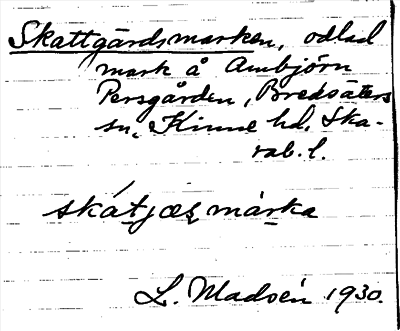 Skattgårdsmarken, odlad
mark å Ambjörn
Persgården, Bredsäters
sn, Kinne hd, Ska-
rab. l.
skátjæʂmàrka
L. Madsén 1930.